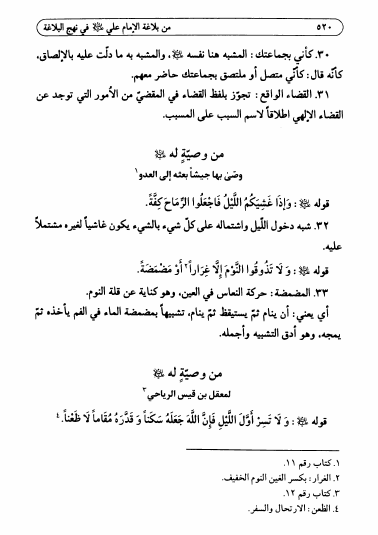 ٥٢٠ من بلاغة الإمام علي ﷺ في نهج البلاغة
٣٠. كأني بجماعتك: المشبه هنا نفسه ﷺ، والمشبه به ما دلّت عليه بالإلصاق،
كأنّه قال: كأنّي متصل أو ملتصق بجماعتك حاضر معهم.
٣١. القضاء الواقع: تجوّز بلفظ القضاء في المقضيّ من الأمور التي توجد عن
القضاء الإلهي اطلاقاً لاسم السبب على المسبب.
من وصيّةٍ له ﷺ
وصّى بها جيشاً بعثه إلى العدو١
قوله ﷺ: وَإِذَا غَشِيَكُمُ اللَّيْلُ فَاجْعَلُوا الرِّمَاحَ كِفَّةً.
٣٢. شبه دخول اللّيل واشتماله على كلّ شيء بالشيء يكون غاشياً لغيره مشتملاً
عليه.
قوله ﷺ: وَ لَا تَذُوقُوا النَّوْمَ إِلَّا غِرَاراً٢ أَوْ مَضْمَضَةً.
٣٣. المضمضة: حركة النعاس في العين، وهو كناية عن قلة النوم.
أي يعني: أن ينام ثمّ يستيقظ ثمّ ينام، تشبيهاً بمضمضة الماء في الفم يأخذه ثمّ
يمجه، وهو أدق التشبيه وأجمله.
من وصيّةٍ له ﷺ
لمعقل بن قيس الرياحي٣
قوله ﷺ: وَ لَا تَسِرْ أَوَّلَ اللَّيْلِ فَإِنَّ اللَّهَ جَعَلَهُ سَكَناً وَ قَدَّرَهُ مُقَاماً لَا ظَعْناً.٤
١. كتاب رقم ١١.
٢. الغرار: بكسر الغين النوم الخفيف.
٣. كتاب رقم ١٢.
٤. الظعن: الارتحال والسفر.